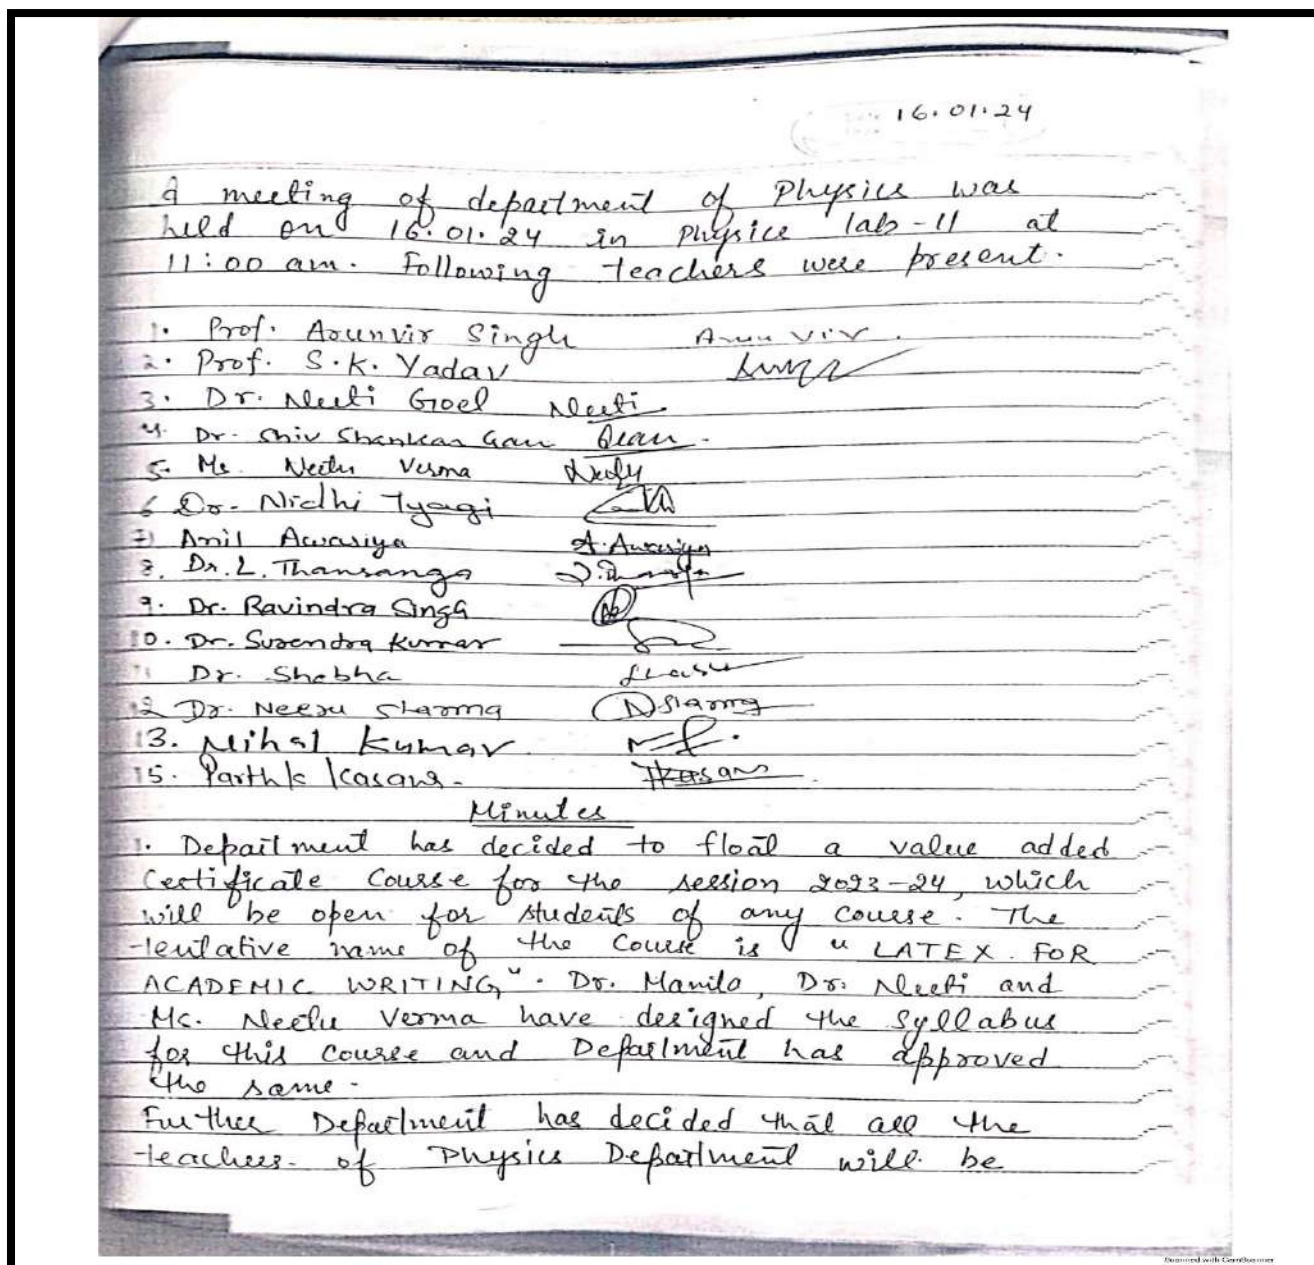 16.01.24
A meeting of department of Physics was
held on 16.01.24 in Physics lab-II at
11:00 am. Following teachers were present.
1. Prof. Arunvir Singh Arunvir.
2. Prof. S.K. Yadav
3. Dr. Neeti Goel Neeti
4. Dr. Shiv Shankar Gaur
5. Ms. Neetu Verma Neetu
6 Dr. Nidhi Tyagi
7) Anil Awasiya A. Awasiya
8. Dr. L. Thansanga
9. Dr. Ravindra Singh
10. Dr. Surendra Kumar
11 Dr. Shobha
12 Dr. Neeru Sharma NSharma
13. Nihal Kumar
15. Parthk Kasana.
Minutes
1. Department has decided to float a value added
Certificate Course for the session 2023-24, which
will be open for students of any course. The
tentative name of the Course is "LATEX FOR
ACADEMIC WRITING". Dr. Manila, Dr. Neeti and
Ms. Neetu Verma have designed the syllabus
for this course and Department has approved
the same.
Further Department has decided that all the
teachers of Physics Department will be
Scanned with CamScanner